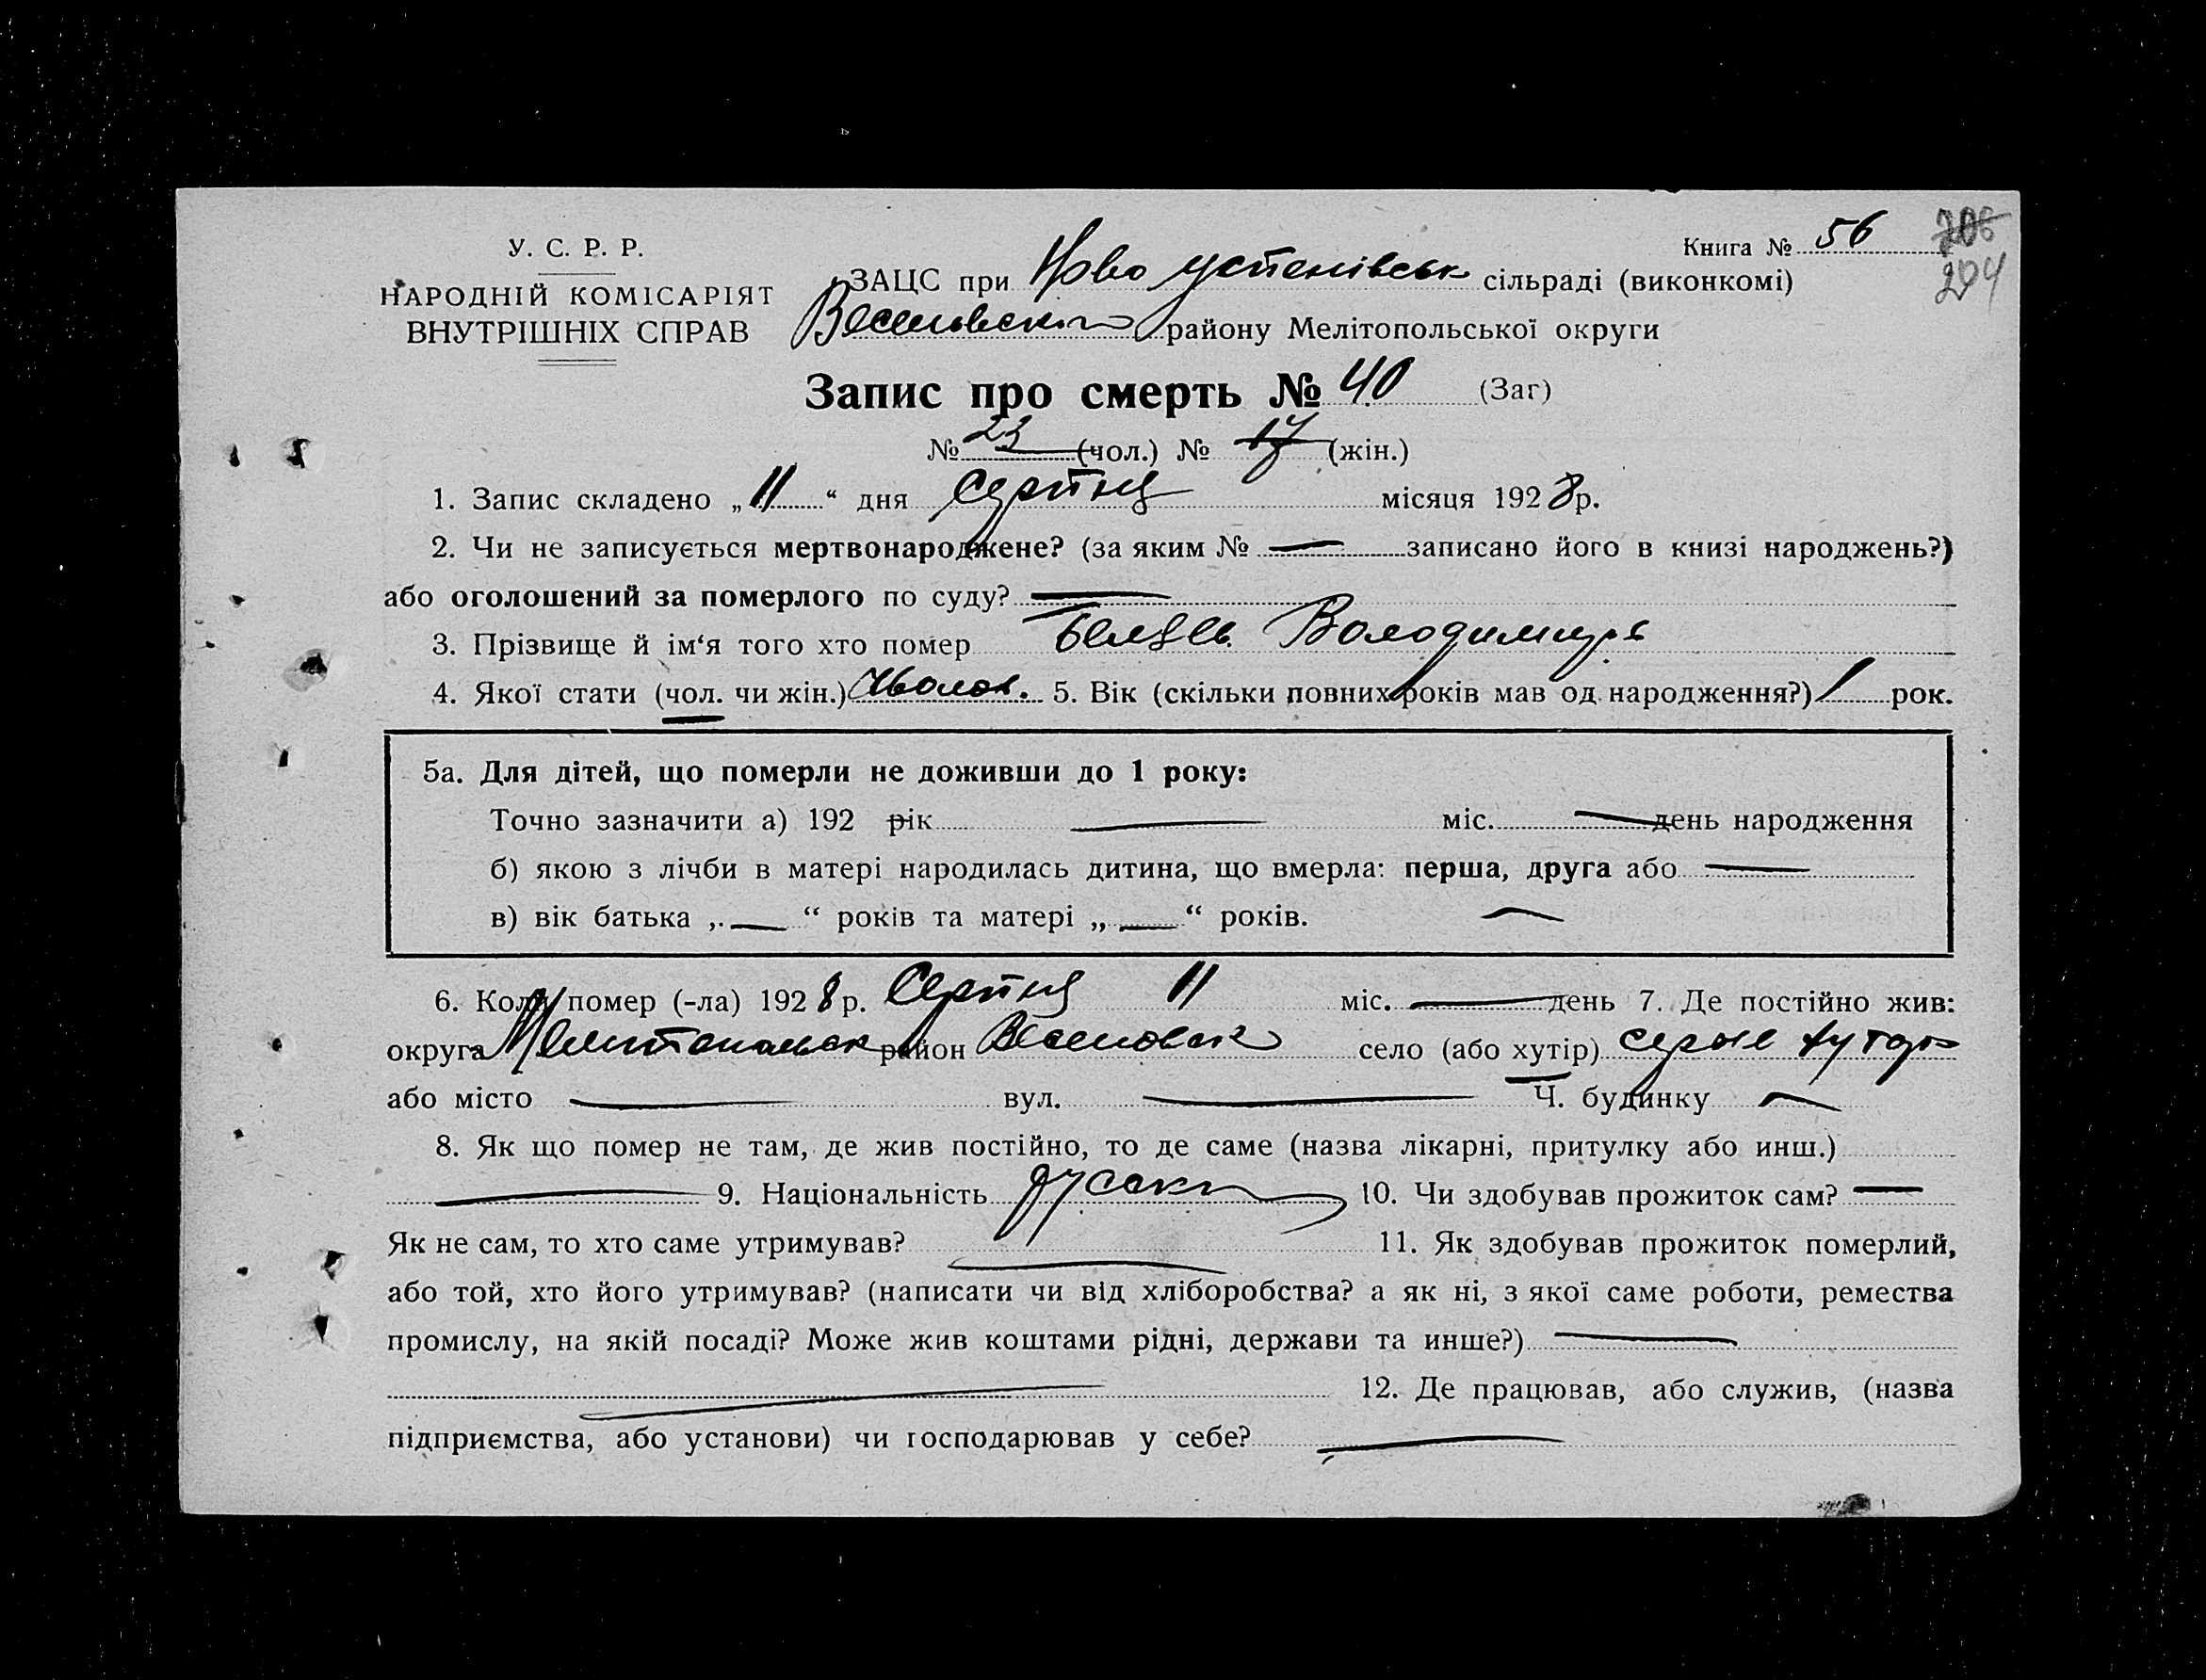 Книга № 56
206
204
У. С. Р. Р.
НАРОДНІЙ КОМІСАРІЯТ
ВНУТРІШНІХ СПРАВ
ЗАЦС при Ново успенівськ сільраді (виконкомі)
району Мелітопольської округи
Запис про смерть № 40 (Заг)
№ 23 (чол.) № 17 (жін.)
1. Запис складено „11“ дня Серпня місяця 1928 р.
2. Чи не записується мертвонароджене? (за яким № — записано його в книзі народжень?)
або оголошений за померлого по суду? —
3. Прізвище й ім‘я того хто помер Володимир
4. Якої стати (чол. чи жін.) Чолов. 5. Вік (скільки повних років мав од народження?) 1 рок.
5а. Для дітей, що померли не доживши до 1 року:
Точно зазначити а) 192 рік — міс. — день народження
б) якою з лічби в матері народилась дитина, що вмерла: перша, друга або —
в) вік батька „ — “ років та матері „ — “ років. —
6. Коли помер (-ла) 1928 р. Серпня 11 міс. — день 7. Де постійно жив:
округа Мелитопольск район Веселовск село (або хутір) хутор
або місто — вул. — Ч. будинку —
8. Як що помер не там, де жив постійно, то де саме (назва лікарні, притулку або инш.)
— 9. Національність 10. Чи здобував прожиток сам? —
Як не сам, то хто саме утримував? — 11. Як здобував прожиток померлий,
або той, хто його утримував? (написати чи від хліборобства? а як ні, з якої саме роботи, ремества
промислу, на якій посаді? Може жив коштами рідні, держави та инше?) —
— 12. Де працював, або служив, (назва
підприємства, або установи) чи господарював у себе? —